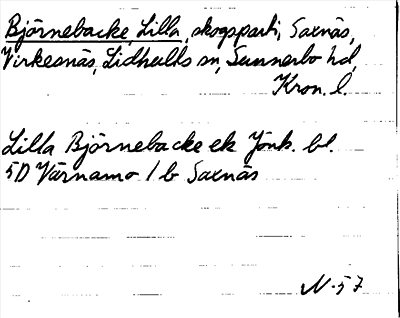 Björnebacke, Lilla, skogsparti, Saxnäs,
Virkesnäs, Lidhults sn, Sunnerbo hd,
Kron. l.
Lilla Björnebacke ek Jönk. bl.
5D Värnamo 1 b Saxnäs
N-57